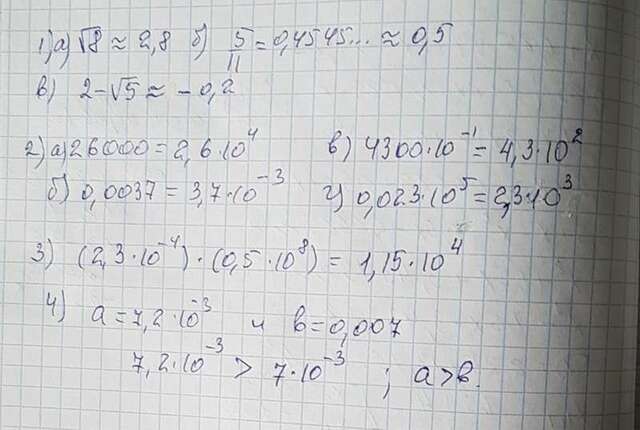 1) а) √8 ≈ 2,8 б) 5/11 = 0,4545... ≈ 0,5
в) 2-√5 ≈ -0,2
2) а) 26000 = 2,6·10⁴ в) 4300·10⁻¹ = 4,3·10²
б) 0,0037 = 3,7·10⁻³ г) 0,023·10⁵ = 2,3·10³
3) (2,3·10⁻⁴)·(0,5·10⁸) = 1,15·10⁴
4) a = 7,2·10⁻³ и b = 0,007
7,2·10⁻³ > 7·10⁻³ ; a > b.